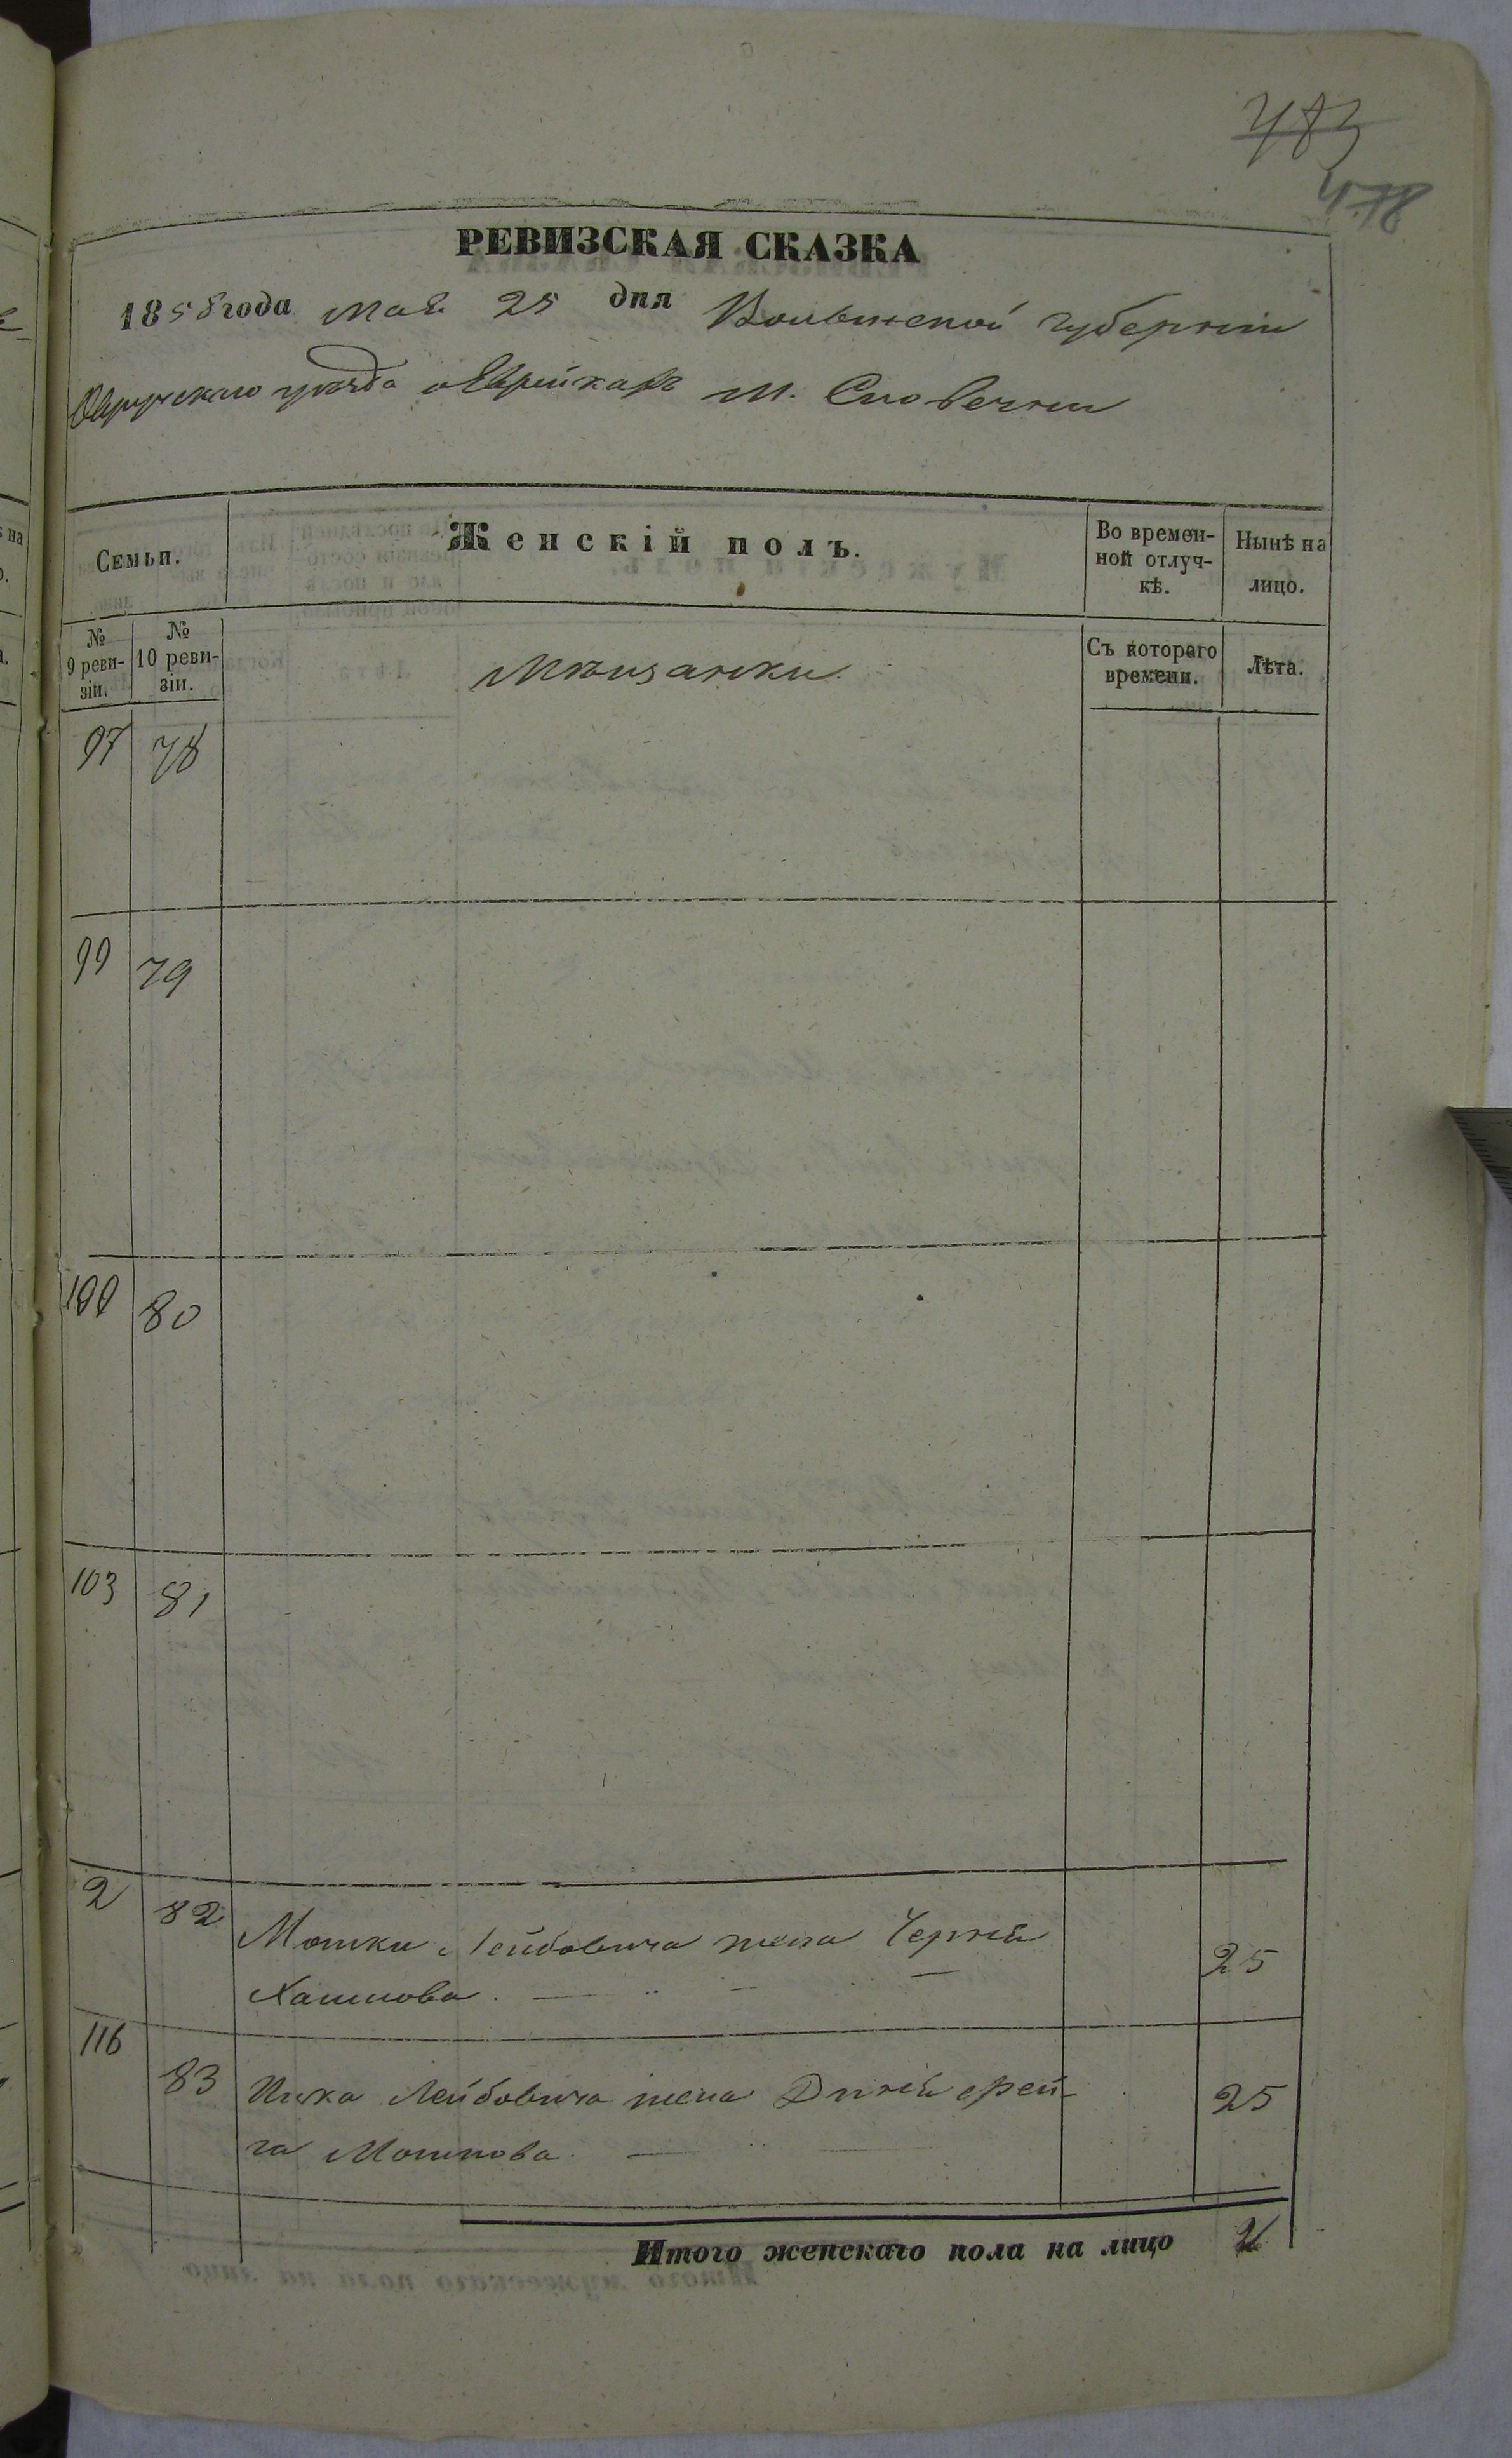 483
478
РЕВИЗСКАЯ СКАЗКА
1858 года Мая 25 дня Волынской губерніи
Овручскаго уѣзда о Еврейкахъ М. Словечни
Семьи.
Женскій полъ.
Во времен-
ной отлуч-
кѣ.
Нынѣ на
лицо.
№
9 реви-
зіи.
№
10 реви-
зіи.
Мѣщанки.
Съ котораго
времени.
Лѣта.
97 78
99 79
100 80
103 81
2 82 Мошки Лейбовича жена Черня
Хаимова. 25
116 83 Ицка Лейбовича жена Двися Фрей-
га Мошкова. 25
Итого женскаго пола на лицо 2